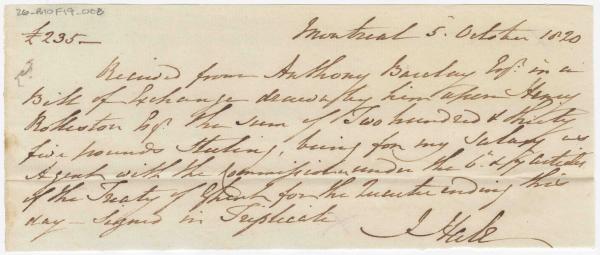 26-B10F19-008
£235 - Montreal 5. October 1820
Received from Anthony Barclay Esqr. in a
Bill of Exchange drawn by him upon Henry
Rolleston Esqr. the sum of Two hundred & thirty
five pounds Sterling, being for my Salary as
Agent with the Commission under the 6 & 7 articles
of the Treaty of Ghent for the Quarter ending this
day - Signed in Triplicate
J Hale